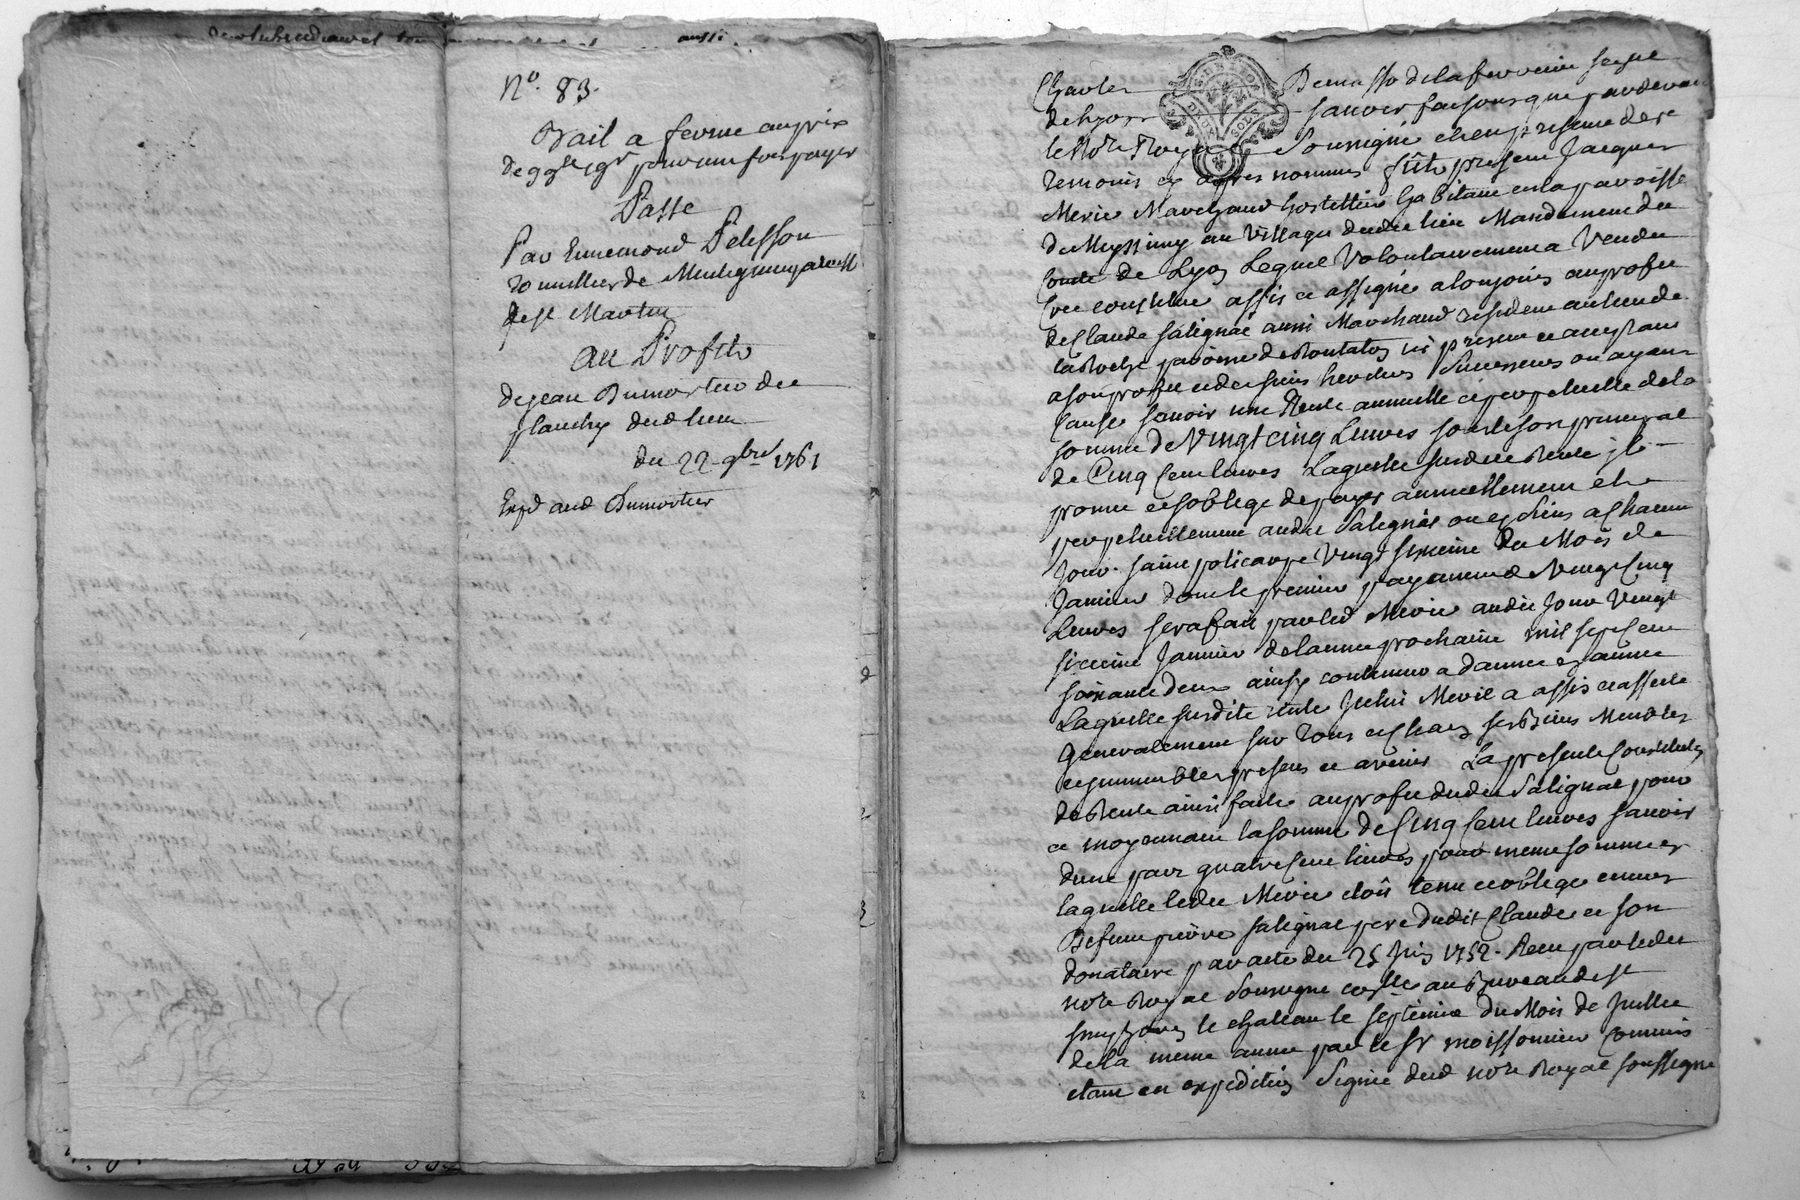 aussi
N.º 83.
Bail a ferme au prix
de 99# 19s pour une fois payer
Passé
Par Ennemond Pelisson
de St Martin
Au Proffit
de jean Dumortier du
planchy dud lieu
du 22 9bre 1761
Expd aud Dumortier
Charles Demasso de la ferriere seque
de lyon scavoir faisons que pardevant
le No.re Royal Soussigné et en presence des
temoins cy apres nommes fût present Jacques
Merie Marchand hostellier habitant en la paroisse
de Meyssimy au village dudit lieu Mandement du
Comte de Lyon Lequel Volontairement a Vendu
Cree constitué assis et assigné a toujours au profit
de Claude salignat aussi Marchand resident au lieu de
laRoche paroisse de Rontalon icy present et acceptant
a son profit et des siens heritiers Successeurs ou ayant
Cause scavoir une Rente annuelle et perpetuelle de la
somme de Vingt cinq Livres sous le sort principal
de Cinq Cent livres Laquelle susditte Rente il
promet et s'oblige de payer annuellement et
perpetuellement audit Salignat ou es siens a chacun
Jour saint policarpe Vingt sixieme du Mois de
Janvier dont le premier payement de Vingt Cinq
Livres sera fait par led Merie audit Jour Vingt
sixieme Janvier de l'année prochaine mil sept cent
soixante deux ainsy continuer d'année en année
Laquelle susdite rente Icelui Merie a assis et assuré
Generalement sur Tous et chacun ses Biens Meubles
et immeubles presens et avenir La presente Constitution
de Rente ainsi faite au profit dudit Salignat pour
et moyennant la somme de Cinq Cent livres scavoir
dune part quatre cent livres pour meme somme en
laquelle ledit Merie etoit tenu et obligé envers
Defunt pierre salignat pere dudit Claude et son
donataire par acte du 25 Juin 1752. Recu par ledit
no.re Royal Soussigné collé au Bureau de St
simphorien le chateau le septieme du Mois de Juillet
de la meme année par le Sr moissonnier Commis
etant en expedition Signée dud no.re Royal soussigné